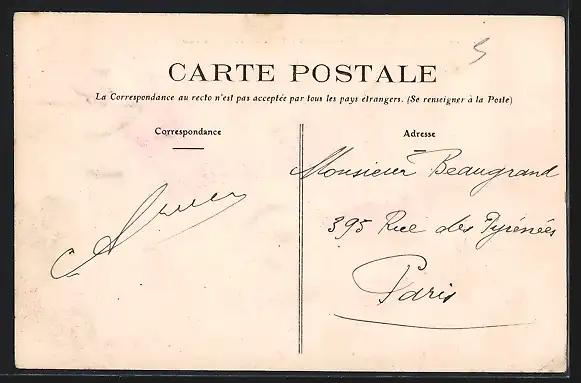 CARTE POSTALE
La Correspondance au recto n'est pas acceptée par tous les pays étrangers. (Se renseigner à la Poste)
Correspondance
Adresse
Monsieur Beaugrand
395 Rue des Pyrénées
Paris